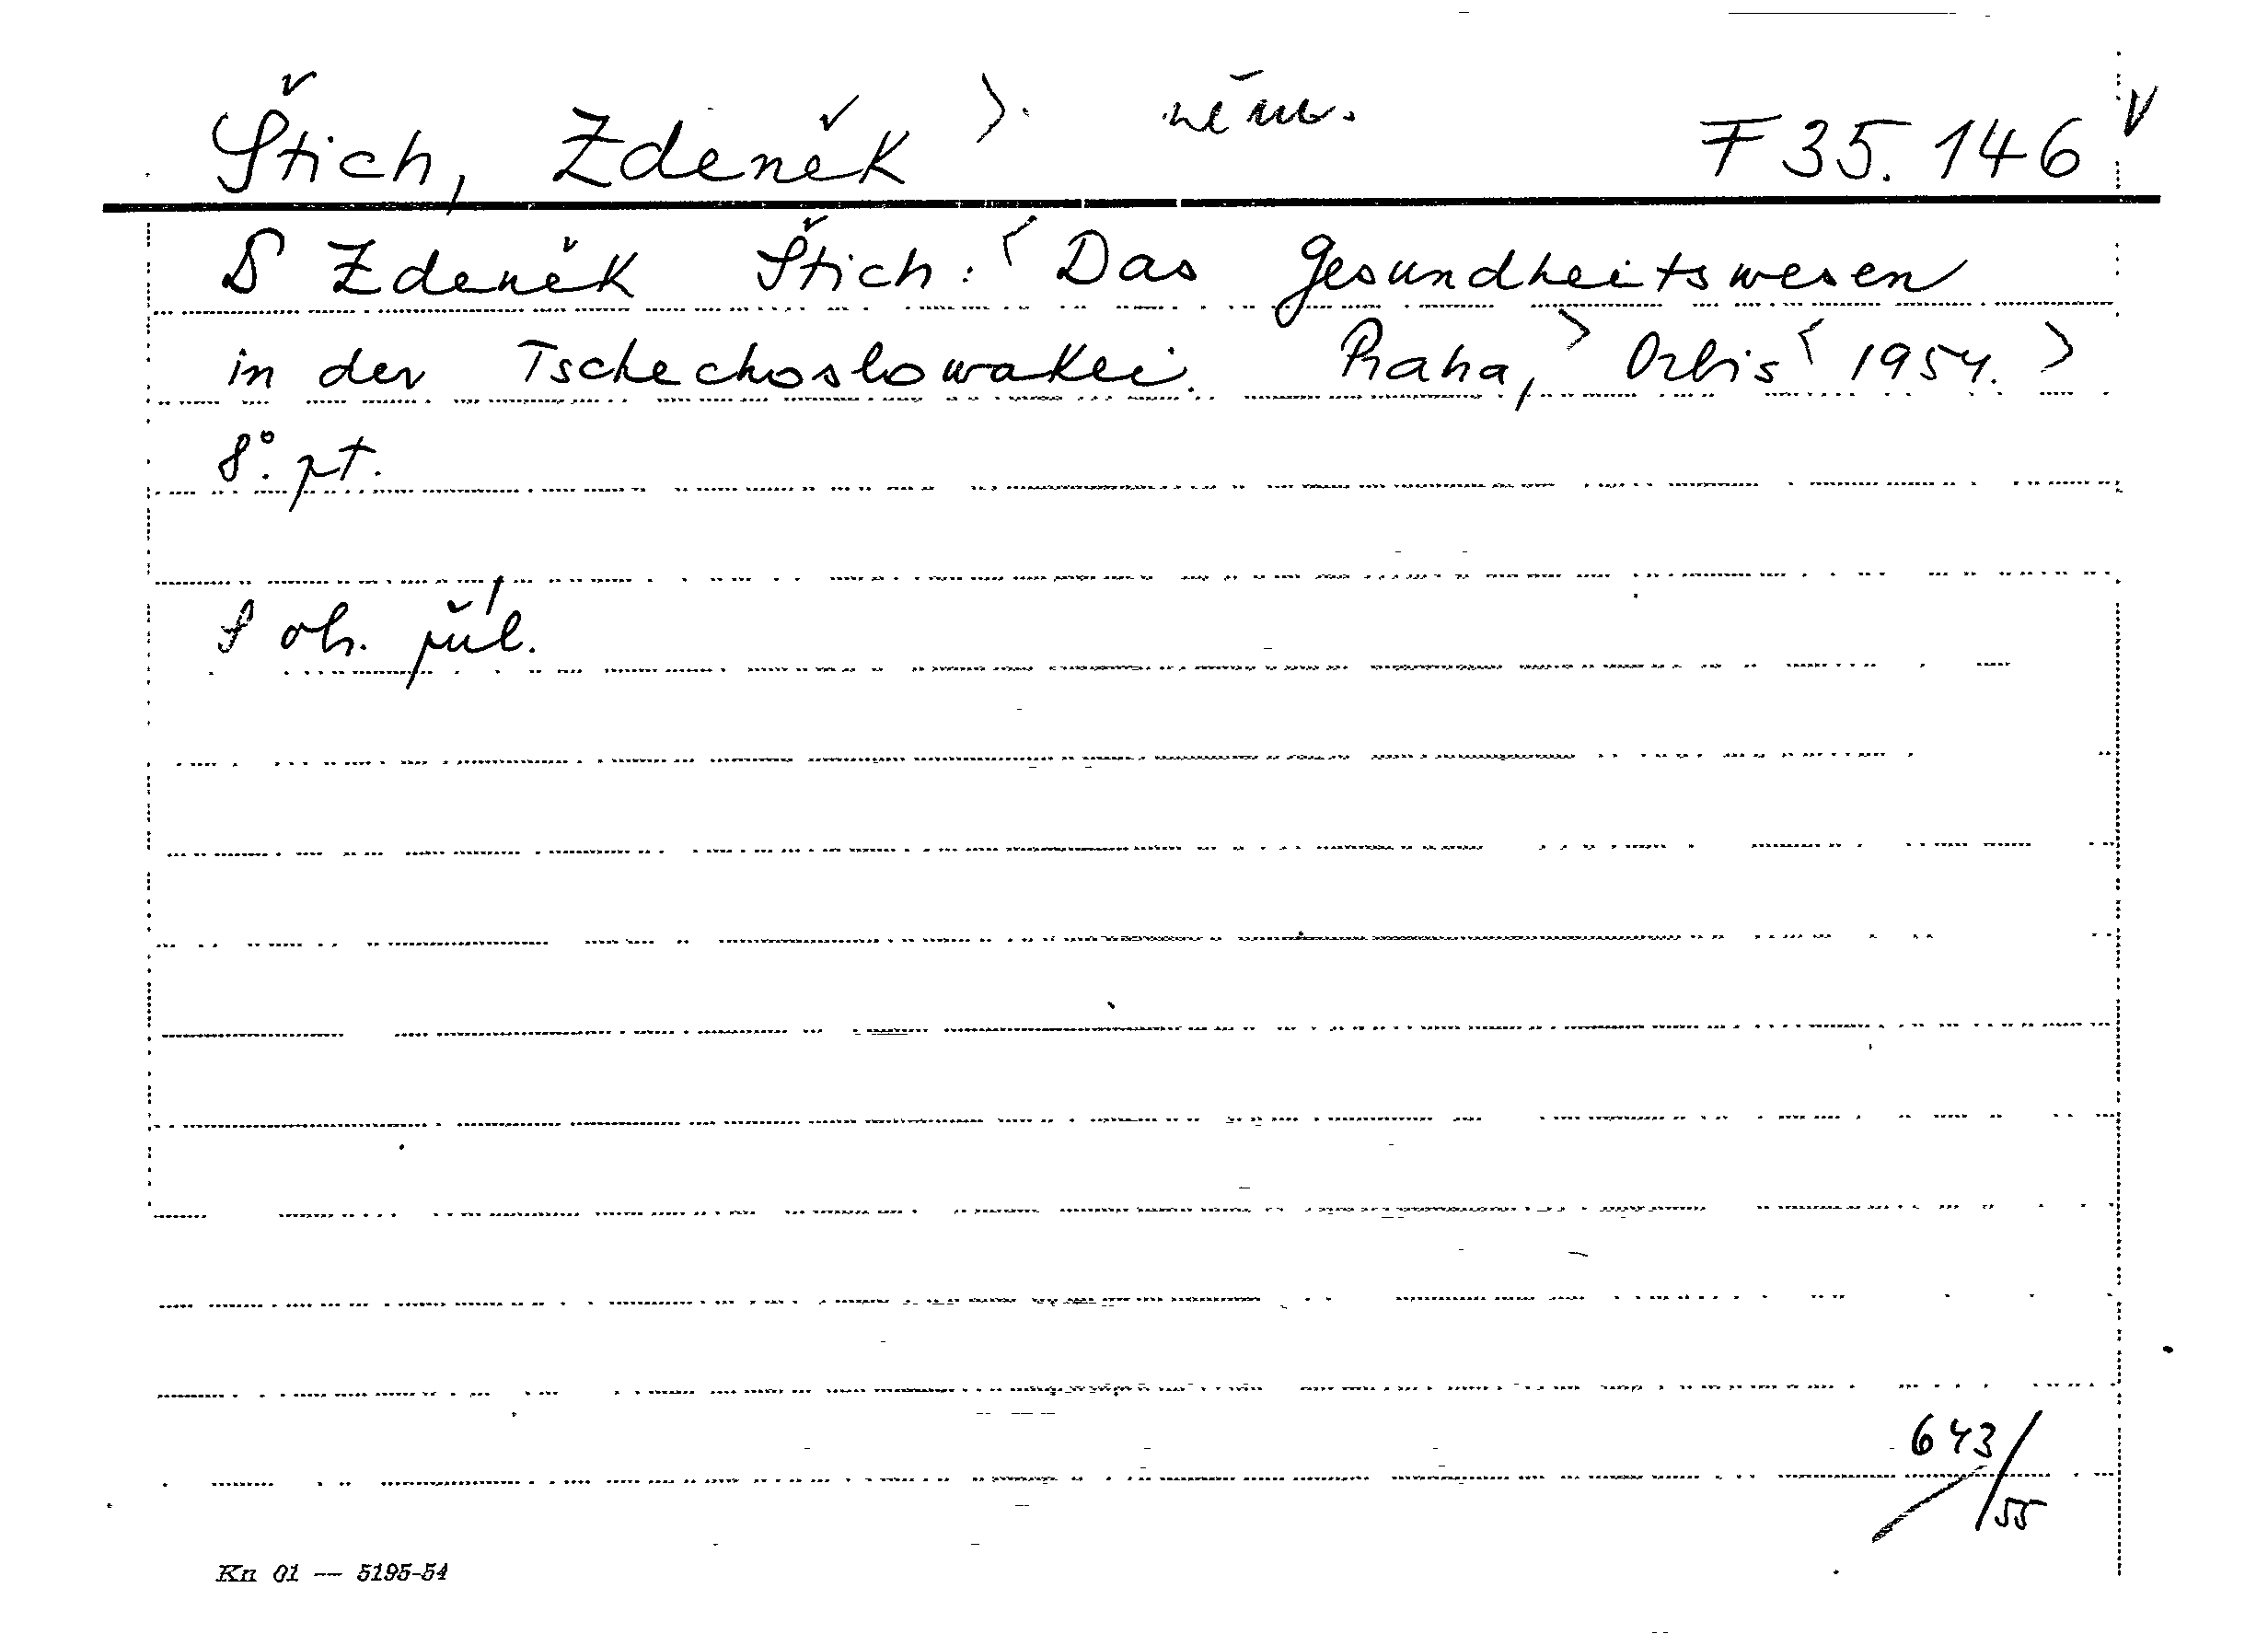 Štich, Zdeněk > něm. F 35.146
Zdeněk Štich: < Das Gesundheitswesen
in der Tschechoslowakei. Praha, > Orbis < 1954. >
8°. pt.
S ob. příl.
643/55
Kn 01 — 5195-54